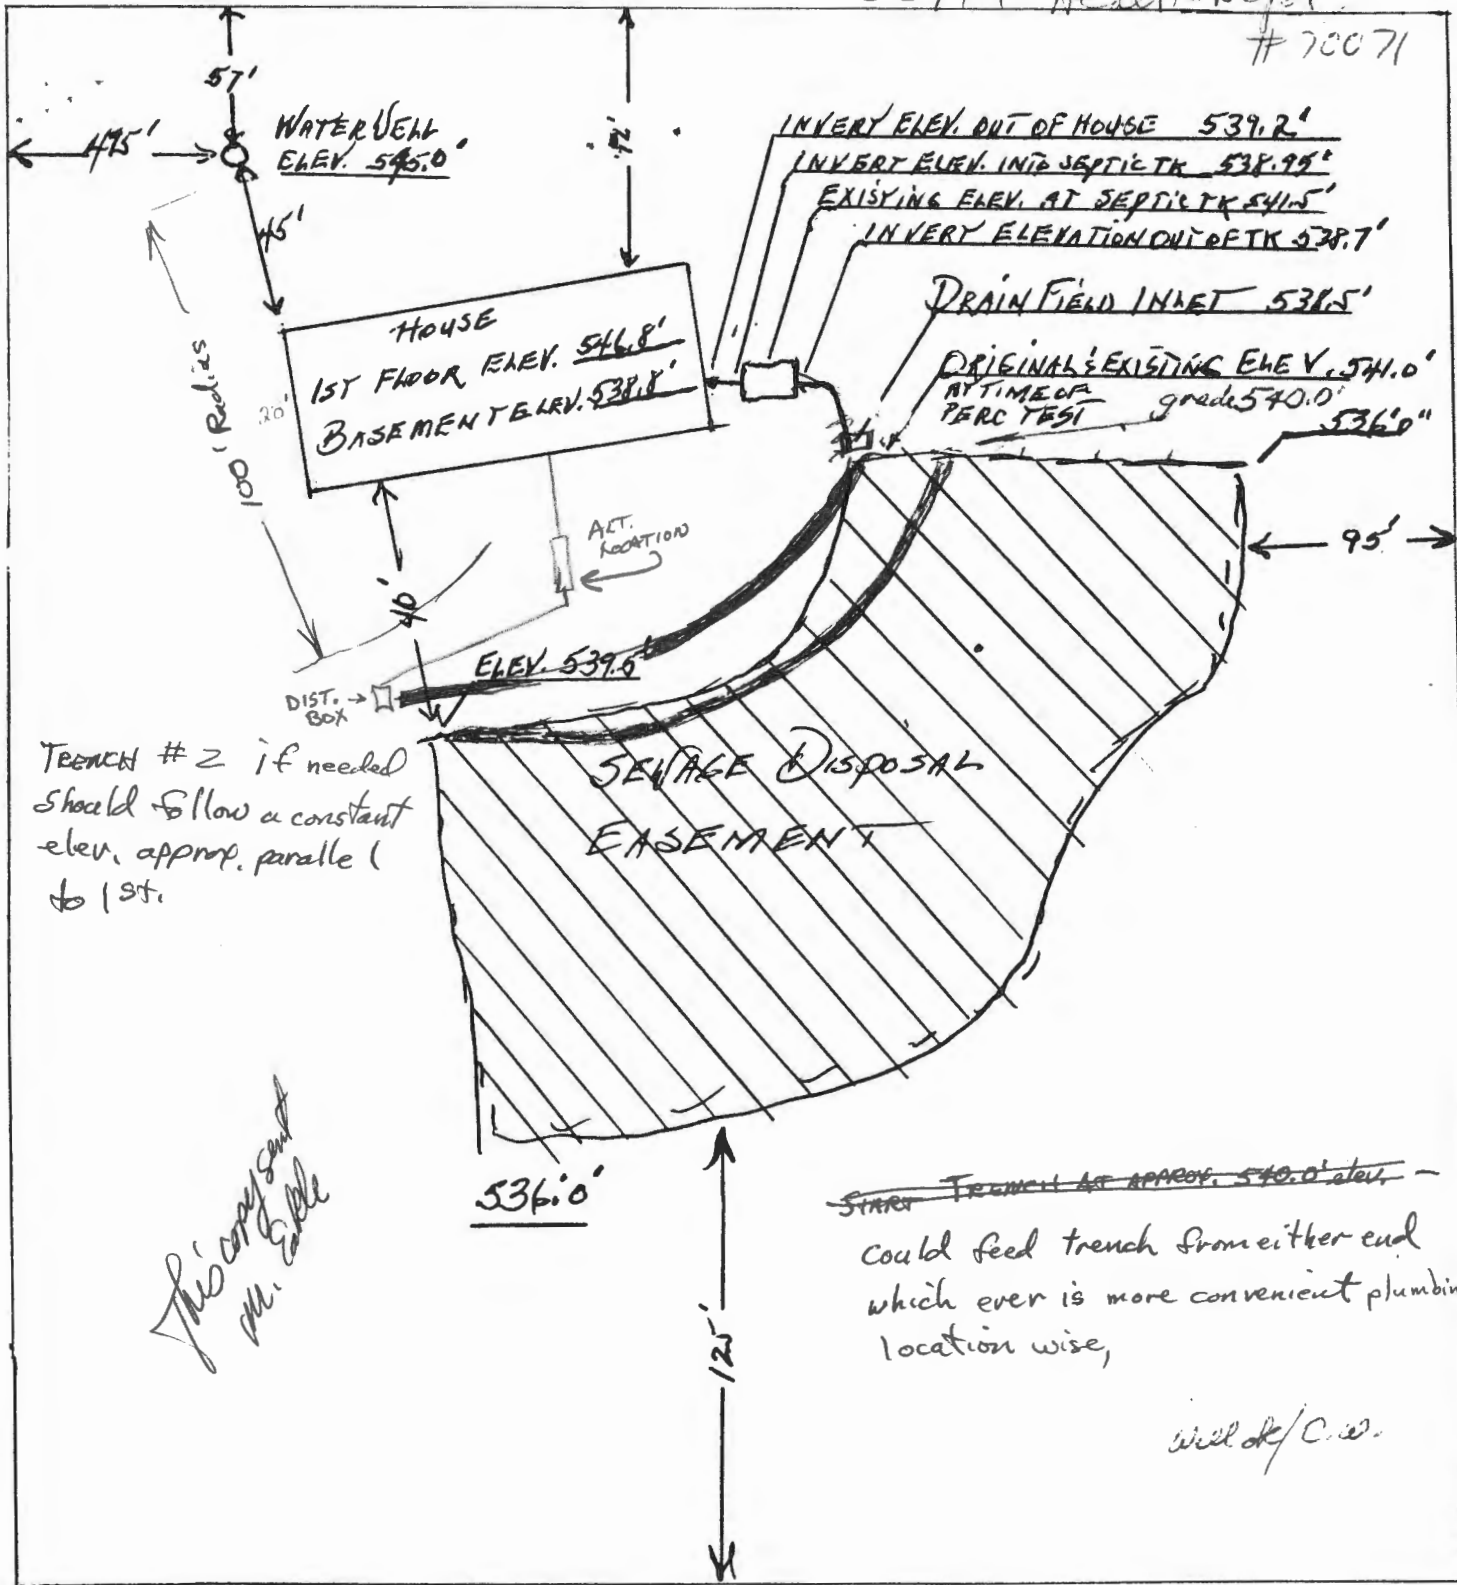 # 70071
57'
WATER WELL
ELEV. 545.0'
45'
INVERT ELEV. OUT OF HOUSE 539.2'
INVERT ELEV. INTO SEPTIC TK 538.95'
EXISTING ELEV. AT SEPTIC TK 541.5'
INVERT ELEVATION OUT OF TK 538.7'
DRAIN FIELD INLET 538.5'
ORIGINAL & EXISTING ELEV. 541.0'
AT TIME OF
PERC TEST
grade 540.0'
536'0"
HOUSE
1ST FLOOR ELEV. 546.8'
BASEMENT ELEV. 538.8'
20'
100' Radius
95'
ALT.
LOCATION
40'
ELEV. 539.5'
DIST.
BOX
TRENCH # 2 if needed
should follow a constant
elev. approx. parallel
to 1st.
SEWAGE DISPOSAL
EASEMENT
This copy sent
536.0'
START TRENCH AT APPROX. 540.0' elev. -
could feed trench from either end
which ever is more convenient plumbin
location wise,
125'
Well ok/C.W.